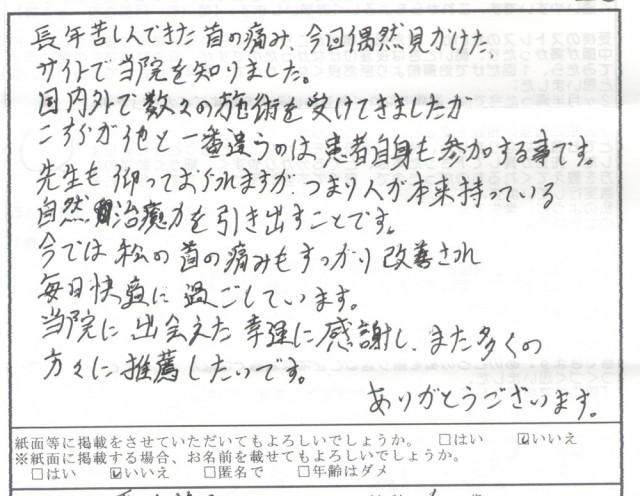 長年苦しんできた首の痛み、今回偶然見かけた、
サイトで当院を知りました。
国内外で数々の施術を受けてきましたが
こちらが他と一番違うのは患者自身も参加する事です。
先生も仰っておられますが、つまり人が本来持っている
自然治癒力を引き出すことです。
今では私の首の痛みもすっかり改善され
毎日快適に過ごしています。
当院に出会えた幸運に感謝し、また多くの
方々に推薦したいです。
ありがとうございます。
紙面等に掲載をさせていただいてもよろしいでしょうか。 □はい ☑いいえ
※紙面に掲載する場合、お名前を載せてもよろしいでしょうか。
□はい ☑いいえ □匿名で □年齢はダメ